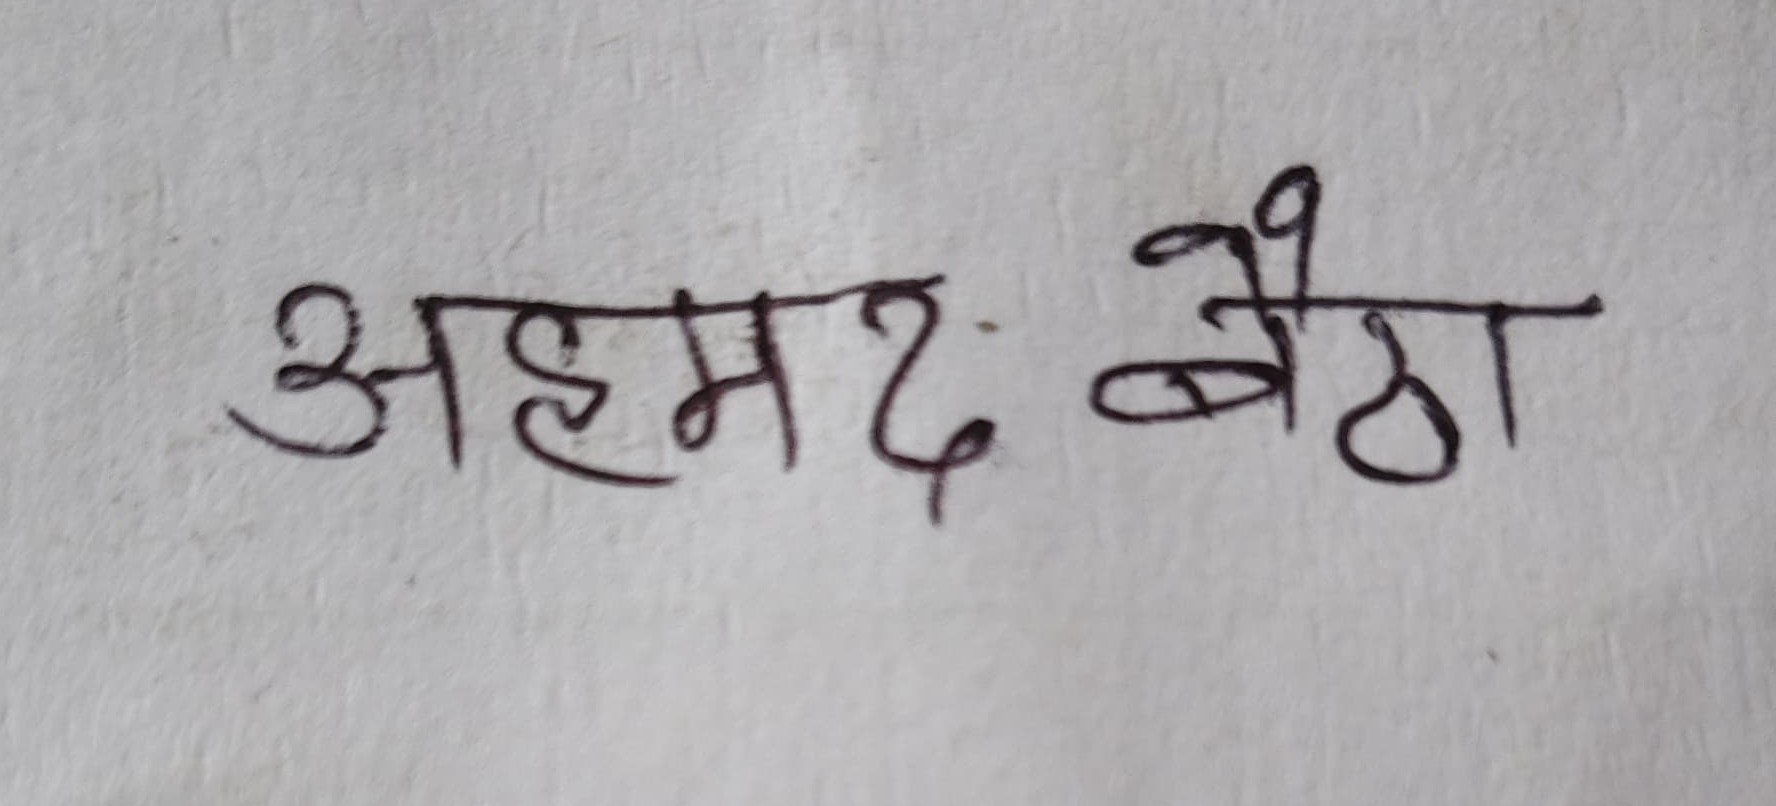 अहमद बैठा